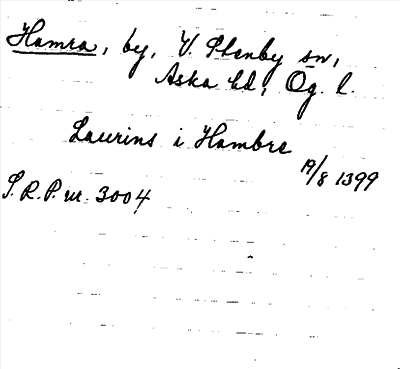 Hamra, by, V. Stenby sn,
Aska hd, Ög. l.
Laurins i Hambre
19/8 1399
S.R.P. nr. 3004